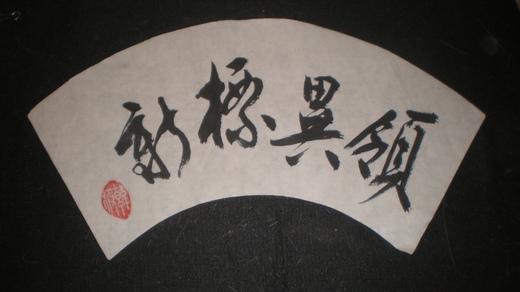 領異標新